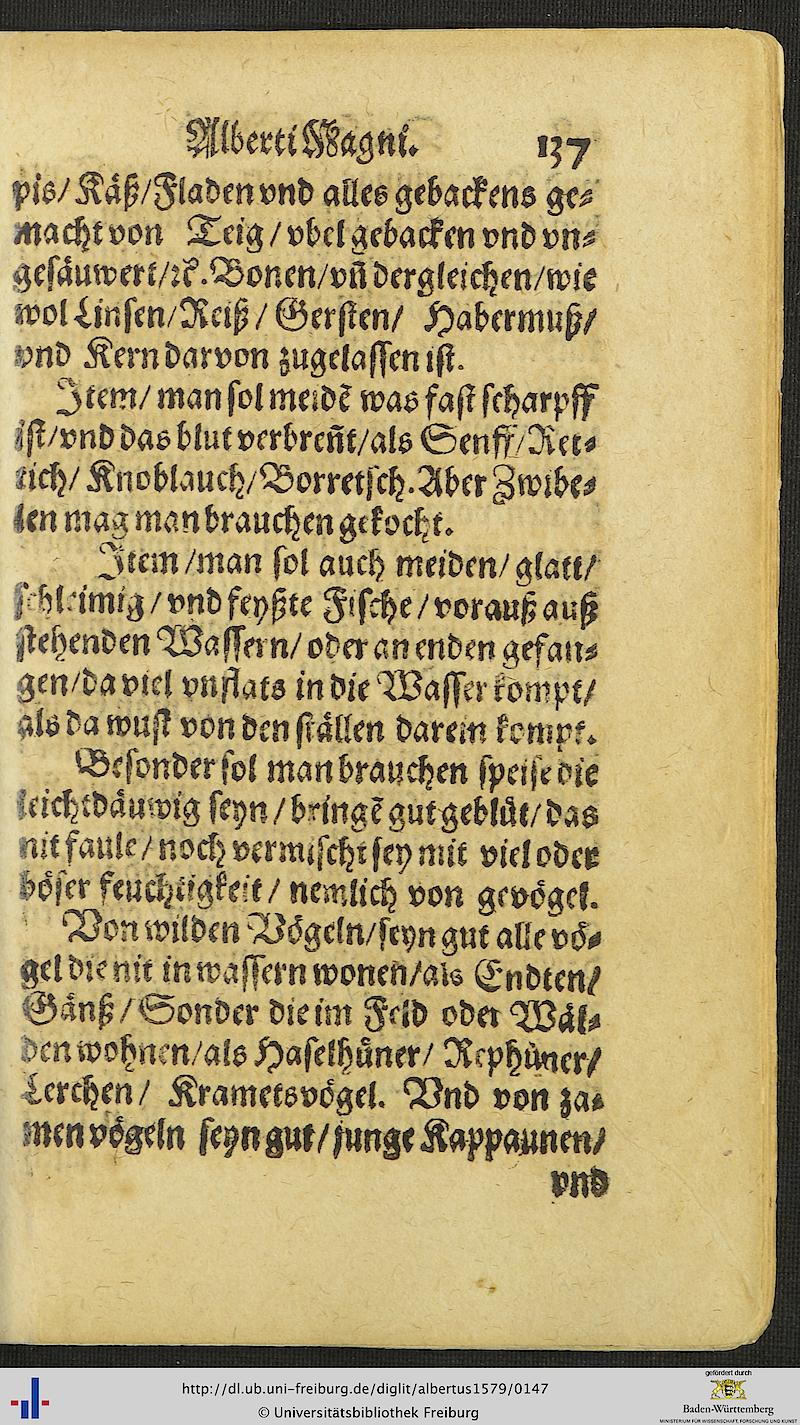 Alberti Magni. 137
pis/ Käß/Fladen vnd alles gebackens ge⸗
macht von Teig / vbel gebacken vnd vn⸗
gesäuwert/ꝛc̃. Bonen/vñ dergleichen/wie
wol Linsen/Reiß / Gersten/ Habermuß/
vnd Kern darvon zugelassen ist.
Item/ man sol meidẽ was fast scharpff
ist/vnd das blut verbreñt/als Senff/Ret⸗
tich/ Knoblauch/Borretsch. Aber Zwibe⸗
len mag man brauchen gekocht.
Item /man sol auch meiden/ glatt/
schleimig / vnd feyßte Fische / vorauß auß
stehenden Wassern/ oder an enden gefan⸗
gen/da viel vnflats in die Wasser kompt/
als da wust von den ställen darein kompt.
Besonder sol man brauchen speise die
leichtdäuwig seyn / bringẽ gut geblüt/ das
nit faule / noch vermischt sey mit viel oder
böser feuchtigkeit / nemlich von gevögel.
Von wilden Vögeln/seyn gut alle vö⸗
gel die nit in wassern wonen/als Endten/
Gänß / Sonder die im Feld oder Wäl⸗
den wohnen/als Haselhüner/ Rephüner/
Lerchen / Krametsvögel. Vnd von za⸗
men vögeln seyn gut / junge Kappaunen/
vnd
http://dl.ub.uni-freiburg.de/diglit/albertus1579/0147
© Universitätsbibliothek Freiburg
gefördert durch
Baden-Württemberg
MINISTERIUM FÜR WISSENSCHAFT, FORSCHUNG UND KUNST